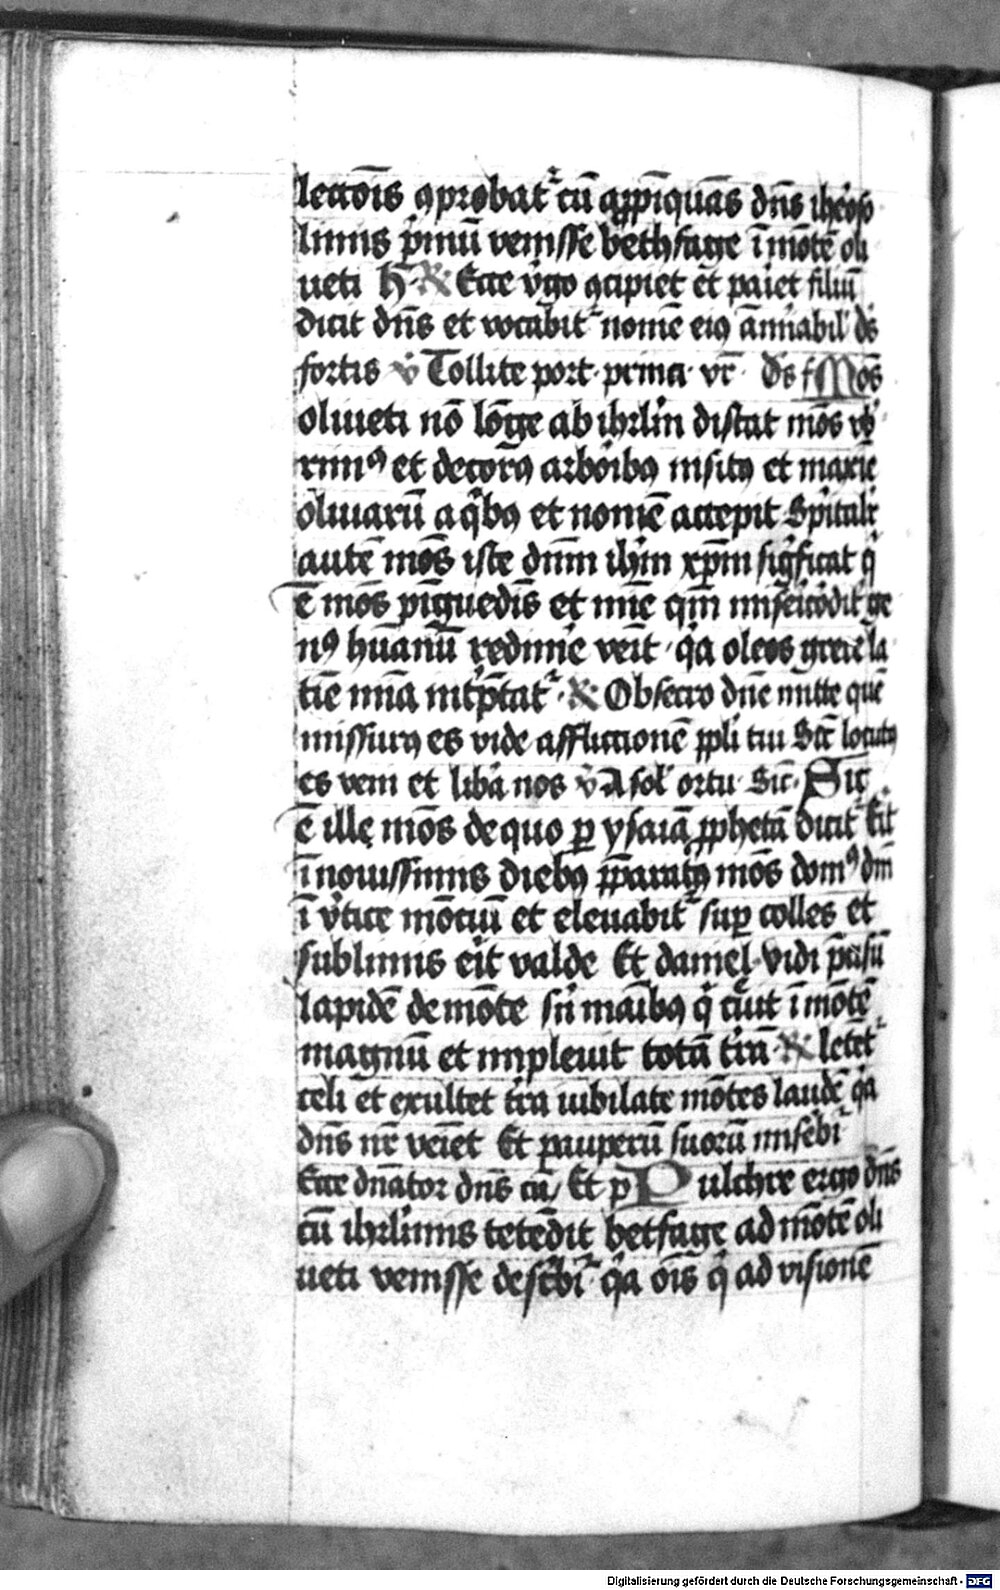 lectōis ꝯprobat᷑ cū aꝓpīquās dn̄s iheroso
limis p̍mū venisse bethfage ī mōtē oli
ueti h̄ ℟ Ecce v̍go ꝯcipiet et pariet filiū
dicit dn̄s et vocabit᷑ nomē eiꝰ ammiabil' ds̄
fortis ℣ Tollite port· princi· vr̄· ds̄ f Mōs
oliueti nō lōge ab ihrl̄m distat mōs
et decorꝰ arboribꝰ insitꝰ et maxīe
oliuarū a q̍bꝰ et nomē accepit Spūalr̄
autē mōs iste dnm̄ ihm̄ xpm̄ sig̍ficat q̍
ē mōs pīguedīs et mīe qm̄ misericordit᷑ ge
nꝰ hūanū redimē veīt· q̍a oleos grece la
tīe mīa īt̍p̄tat᷑· ℟ Obsecro dn̄e mitte quē
missurꝰ es vide afflictionē ppl̄i tui Sic̄ locutꝰ
es veni et libera nos ℣ A sol' ortu· Sic̄· Sic
ē ille mōs de quo ꝑ ysaiā ꝓphetā dicit᷑ Eīt
ī nouissimis diebꝰ p̄paratꝰ mōs domꝰ dn̄i
ī v̍tice mōciū et eleuabit᷑ suꝑ colles et
sublimis eīt valde Et daniel vidi p̄cisū
lapidē de mōte sn̄ māibꝰ q̍ creuit ī mōtē
magnū et impleuit totā t̍rā ℟ letēt᷑
celi et exultet t̍ra iubilate mōtes laudē q̍a
dn̄s nr̄ veīet Et pauperū suorū miseb̍i᷑
Ecce dn̄ator dn̄s cū/ Et p Pulchre ergo dn̄s
cū ihrl̍imis tetēdit betfage ad mōtē oli
ueti venisse desc̍bi᷑ q̍a oīs q̍ ad visionē
Digitalisierung gefördert durch die Deutsche Forschungsgemeinschaft - DFG